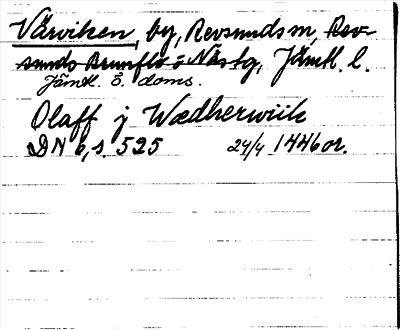 Vårviken, by, Revsunds sn, Rev-
sunds Brunflo o Näs tg, Jämtl. l.
Jämtl. Ö. doms.
Olaff j Wædherwiik
DN 6, s. 525 24/4 1446 or.